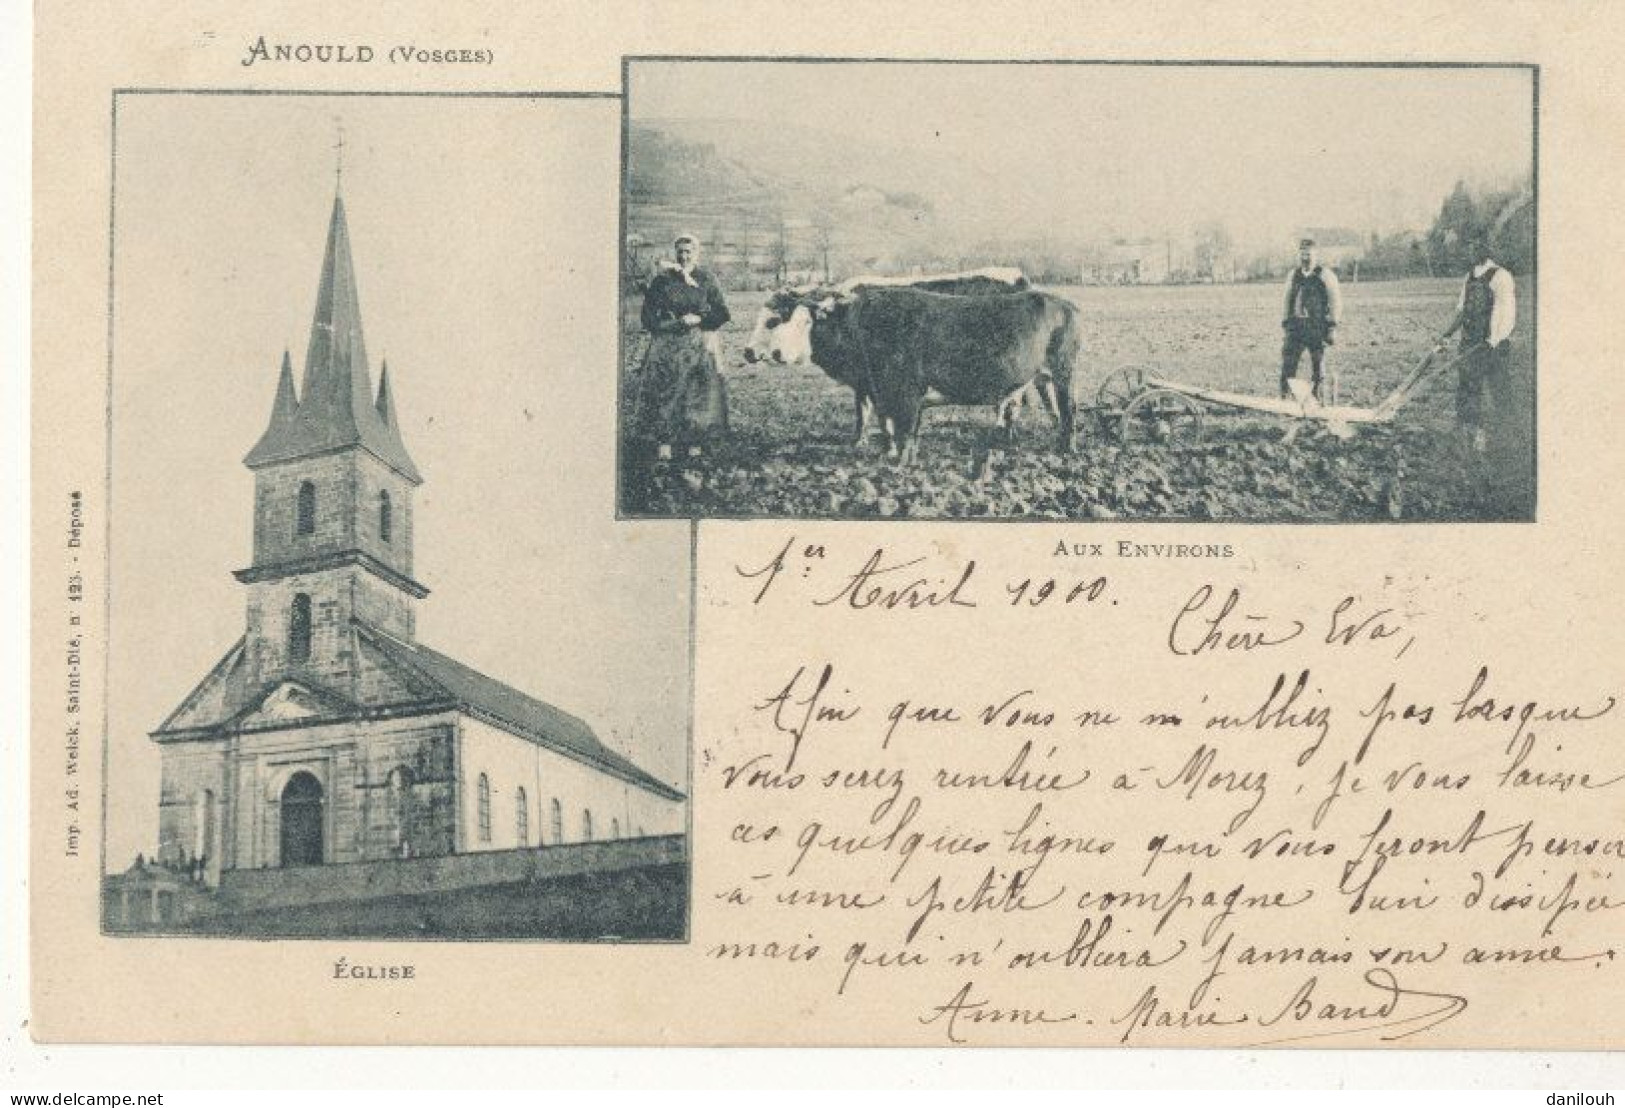 ANOULD (VOSGES)
AUX ENVIRONS
1er Avril 1900.
Chère Eva,
Afin que vous ne m'oubliez pas lorsque
vous serez rentrée à Morez, je vous laisse
ces quelques lignes qui vous feront penser
à une petite compagne bien dissipée
mais qui n'oubliera jamais son amie.
Anne-Marie Baud
ÉGLISE
Imp. Ad. Weick, Saint-Dié, n° 123. - Déposé
delcampe.net
danilouh